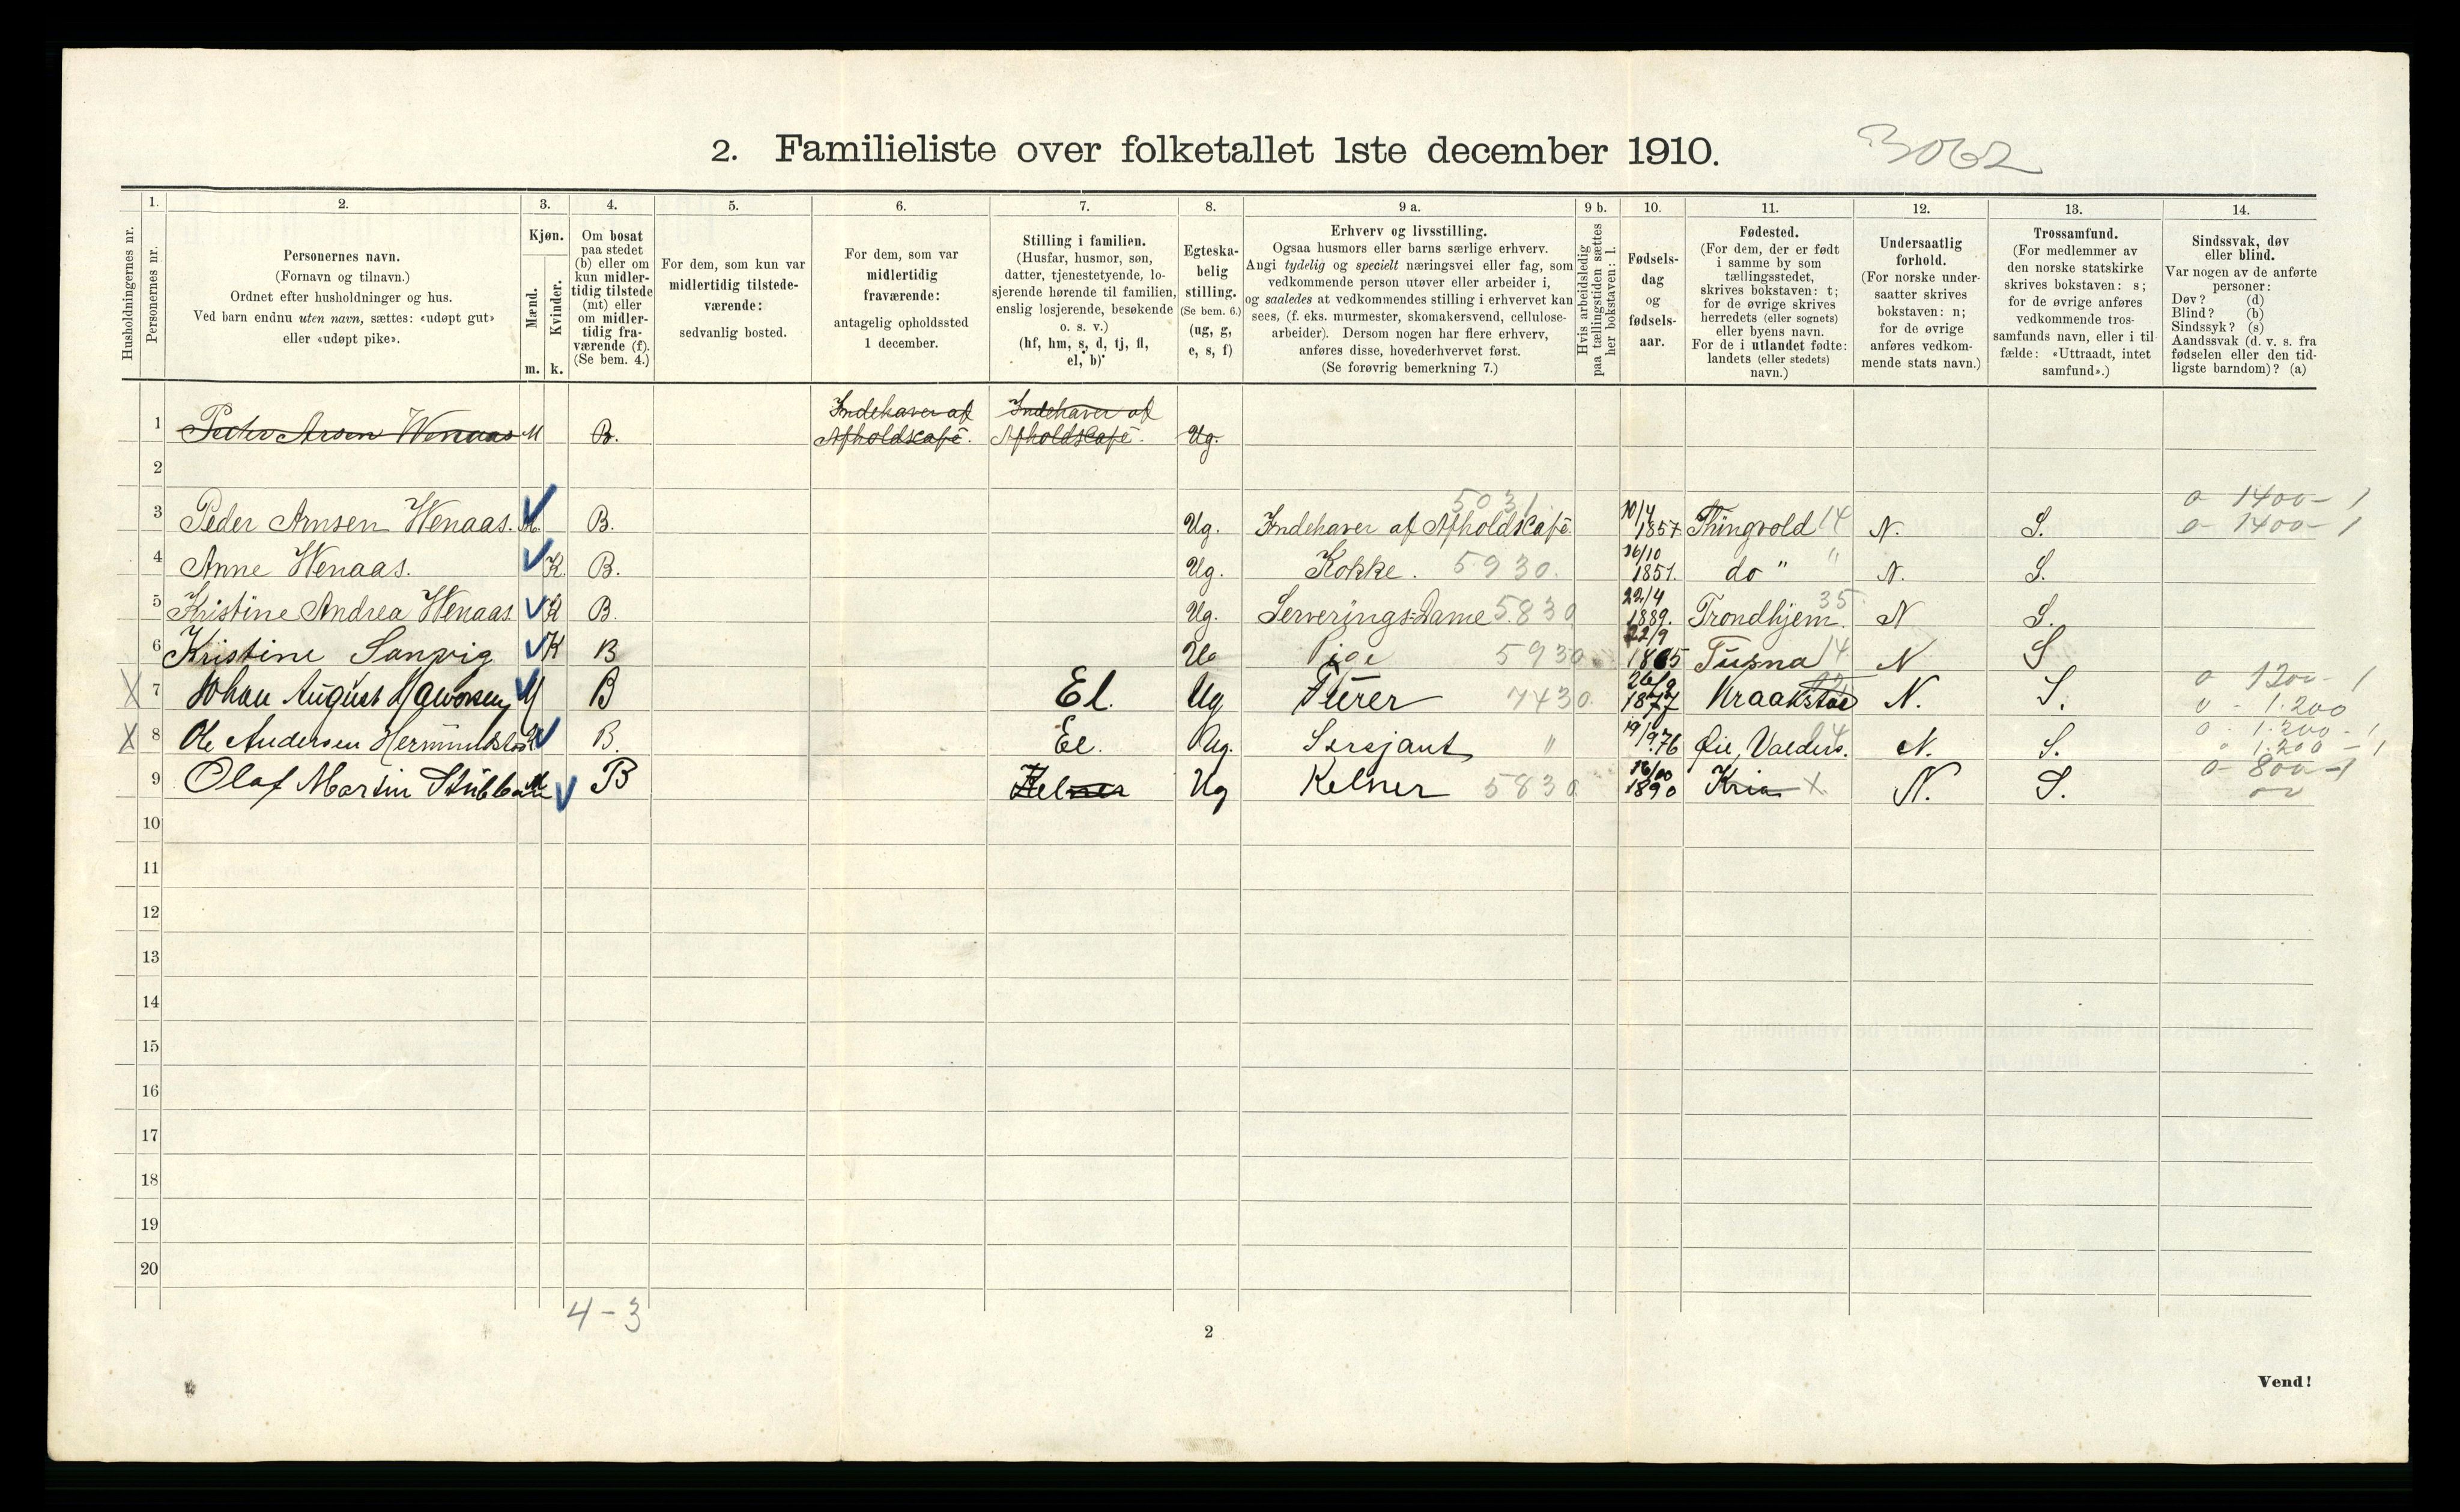 2. Familieliste over folketallet 1ste december 1910.
3062
Husholdningernes nr.
1.
Personernes nr.
2.
Personernes navn.
(Fornavn og tilnavn.)
Ordnet efter husholdninger og hus.
Ved barn endnu uten navn, sættes: «udøpt gut»
eller «udøpt pike».
3.
Kjøn.
Mænd.
Kvinder.
m. k.
4.
Om bosat
paa stedet
(b) eller om
kun midler-
tidig tilstede
(mt) eller
om midler-
tidig fra-
værende (f).
(Se bem. 4.)
5.
For dem, som kun var
midlertidig tilstede-
værende:
sedvanlig bosted.
6.
For dem, som var
midlertidig
fraværende:
antagelig opholdssted
1 december.
7.
Stilling i familien.
(Husfar, husmor, søn,
datter, tjenestetyende, lo-
sjerende hørende til familien,
enslig losjerende, besøkende
o. s. v.)
(hf, hm, s, d, tj, fl,
el, b)
8.
Egteska-
belig
stilling.
(Se bem. 6.)
(ug, g,
e, s, f)
9 a.
Erhverv og livsstilling.
Ogsaa husmors eller barns særlige erhverv.
Angi tydelig og specielt næringsvei eller fag, som
vedkommende person utøver eller arbeider i,
og saaledes at vedkommendes stilling i erhvervet kan
sees, (f. eks. murmester, skomakersvend, cellulose-
arbeider). Dersom nogen har flere erhverv,
anføres disse, hovederhvervet først.
(Se forøvrig bemerkning 7.)
9 b.
Hvis arbeidsledig
paa tællingstiden sættes
her bokstaven: l.
10.
Fødsels-
dag
og
fødsels-
aar.
11.
Fødested.
(For dem, der er født
i samme by som
tællingsstedet,
skrives bokstaven: t;
for de øvrige skrives
herredets (eller sognets)
eller byens navn.
For de i utlandet fødte:
landets (eller stedets)
navn.)
12.
Undersaatlig
forhold.
(For norske under-
saatter skrives
bokstaven: n;
for de øvrige
anføres vedkom-
mende stats navn.)
13.
Trossamfund.
(For medlemmer av
den norske statskirke
skrives bokstaven: s;
for de øvrige anføres
vedkommende tros-
samfunds navn, eller i til-
fælde: «Uttraadt, intet
samfund».)
14.
Sindssvak, døv
eller blind.
Var nogen av de anførte
personer:
Døv? (d)
Blind? (b)
Sindssyk? (s)
Aandssvak (d. v. s. fra
fødselen eller den tid-
ligste barndom)? (a)
1 Peder Arsen Wenaas M B. Indehaver af Afholdscafé. Indehaver af Afholdscafé. Ug.
2
3 Peder Arnsen Wenaas. M. B. Ug. Indehaver af Afholdscafé. 5031 10/4 1857. Thingvold 14 N. S. 0 1400 - 1
0 - 1400 - 1
4 Anne Wenaas. K. B. Ug. Kokke. 5930. 16/10 1851. do " " N. S.
5 Kristine Andrea Wenaas. K B. Ug. Serverings-Dame 5830 22/4 1889. Trondhjem. 35 N S.
6 Kristine Sanvig K B Ug Pige 5930 22/9 Tusna 14 N S
X 7 Johan August M B El. Ug Furer 7430 26/9 1877 Kraakstad N. S. 0 1200 - 1
0 - 1.200
X 8 Ole Andersen B. El. Ug. Sersjant " 19/9 76 Øie, Valders. N. S. 0 - 1.200 - 1
" 1.200 - 1
9 Olaf Martin M B Kelner Ug Kelner 5830 1890 Kria X N. S. 0 - 800 - 1
10
11
12
13
14
15
16
17
18
19
20
4 - 3
2
Vend!